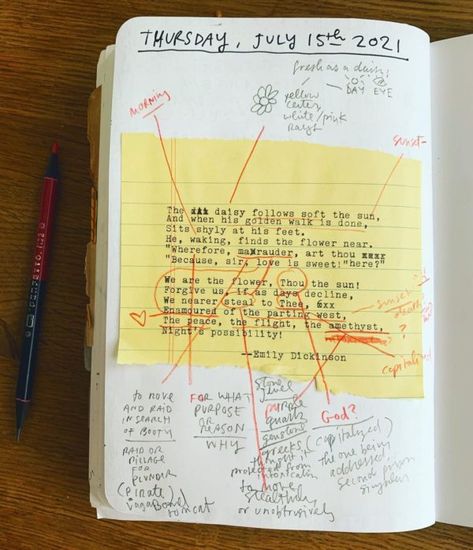 THURSDAY, JULY 15th 2021
fresh as a daisy
DAY EYE
MORNING
yellow
center
white/pink
rays
sunset
The xxx daisy follows soft the sun,
And when his golden walk is done,
Sits shyly at his feet.
He, waking, finds the flower near.
"Wherefore, marauder, art thou xxxr
"Because, sir, love is sweet!"here?"
We are the flower, Thou the sun!
Forgive us, if as days decline,
We nearer steal to Thee, 6xx
Enamoured of the parting west,
The peace, the flight, the amethyst,
Night's possibility!
--Emily Dickinson
sunset
death
?
capitalized
to move
AND RAID
IN SEARCH
OF BOOTY
RAID OR
PILLAGE
FOR
PLUNDER
(pirate)
vagabond
tomcat
FOR WHAT
PURPOSE
OR
REASON
WHY
stone
jewel
purple
quartz
gemstone
greeks
thought it
protected from
intoxication
to move
stealthily
or unobtrusively
God?
(capitalized)
the one being
addressed
second person
singular